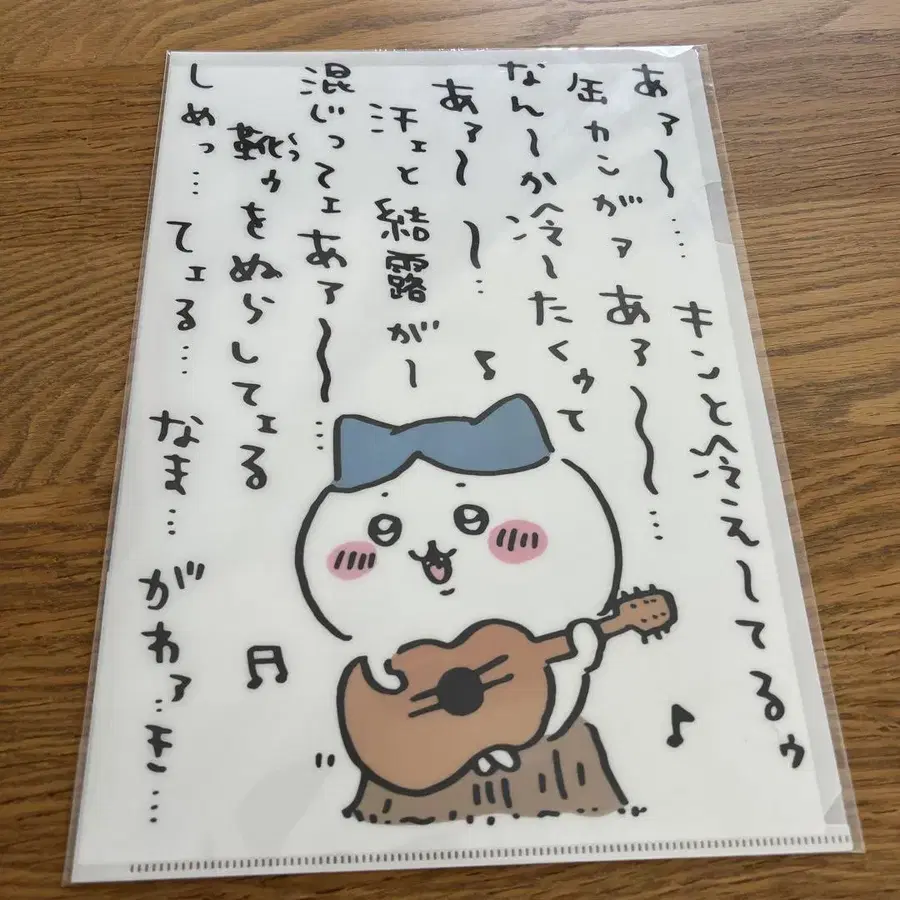 あァ〜…. キンと冷えーてるゥ
缶カンがァ あァ〜〜…
なん〜か冷〜たくゥて
あァ〜 〜…
汗ェと結露がー
混じってェあァ〜〜…
靴くつゥをぬらしてェる
しめっ…てェる… なま… がわァ…き…